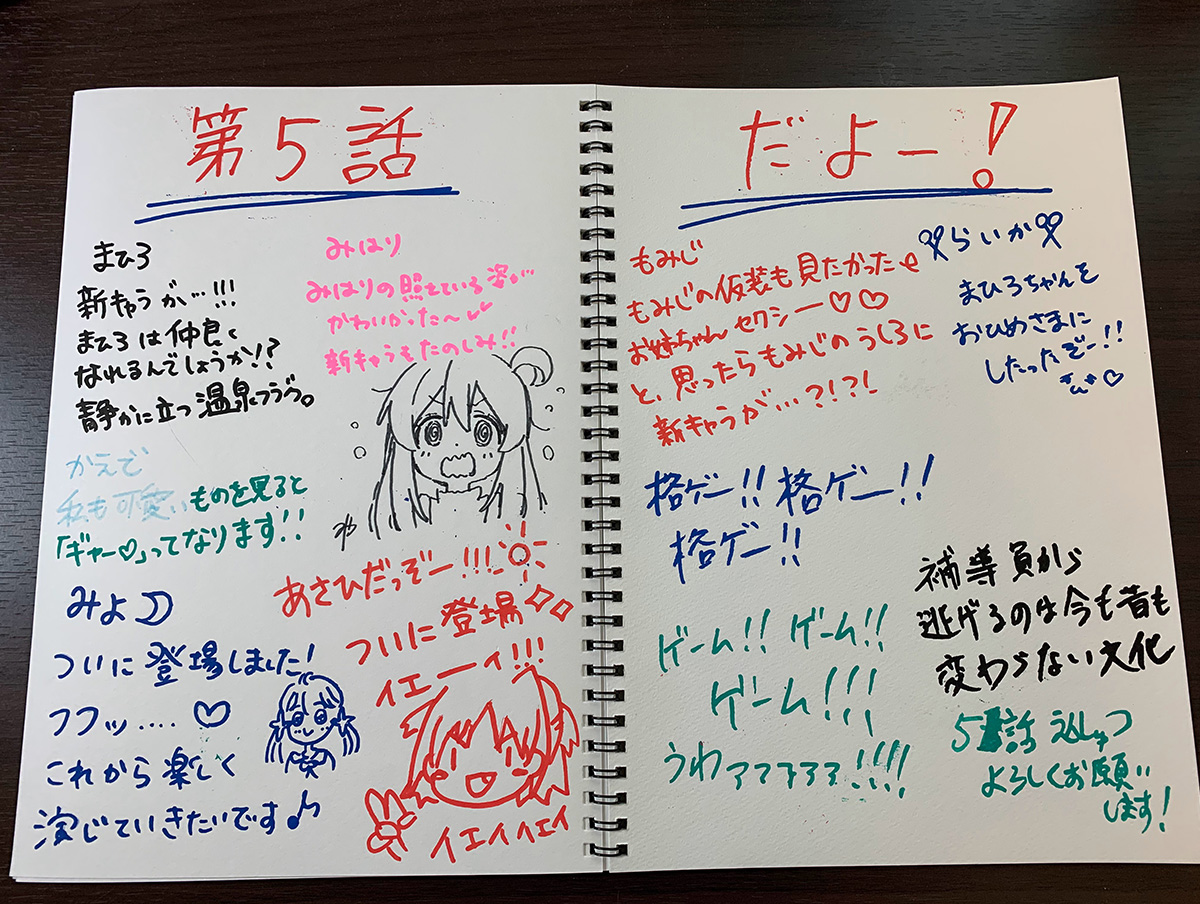 第5話
だよー!
まひろ
新キャラが…!!!
まひろは仲良く
なれるんでしょうか!?
静かに立つ温泉フラグ。
みはり
みはりの照れている姿が
かわいかった〜
新キャラもたのしみ!!
かえで
私も可愛いものを見ると
「ギャー♡」ってなります!!
みよ
ついに登場しました!
フフッ....♡
これから楽しく
演じていきたいです♪
あさひだっぞー!!!
ついに登場
イエーイ!!!
イエイイエイ
もみじ
もみじの仮装も見たかった
お姉ちゃんセクシー♡♡
と、思ったらもみじのうしろに
新キャラが…?!?!
らいか
まひろちゃんを
おひめさまに
したったぞー!!
♡
格ゲー!!格ゲー!!
格ゲー!!
ゲーム!! ゲーム!!
ゲーム!!!
うわァァァァァ!!!!
補導員から
逃げるのは今も昔も
変わらない文化
5話
よろしくお願い
します!